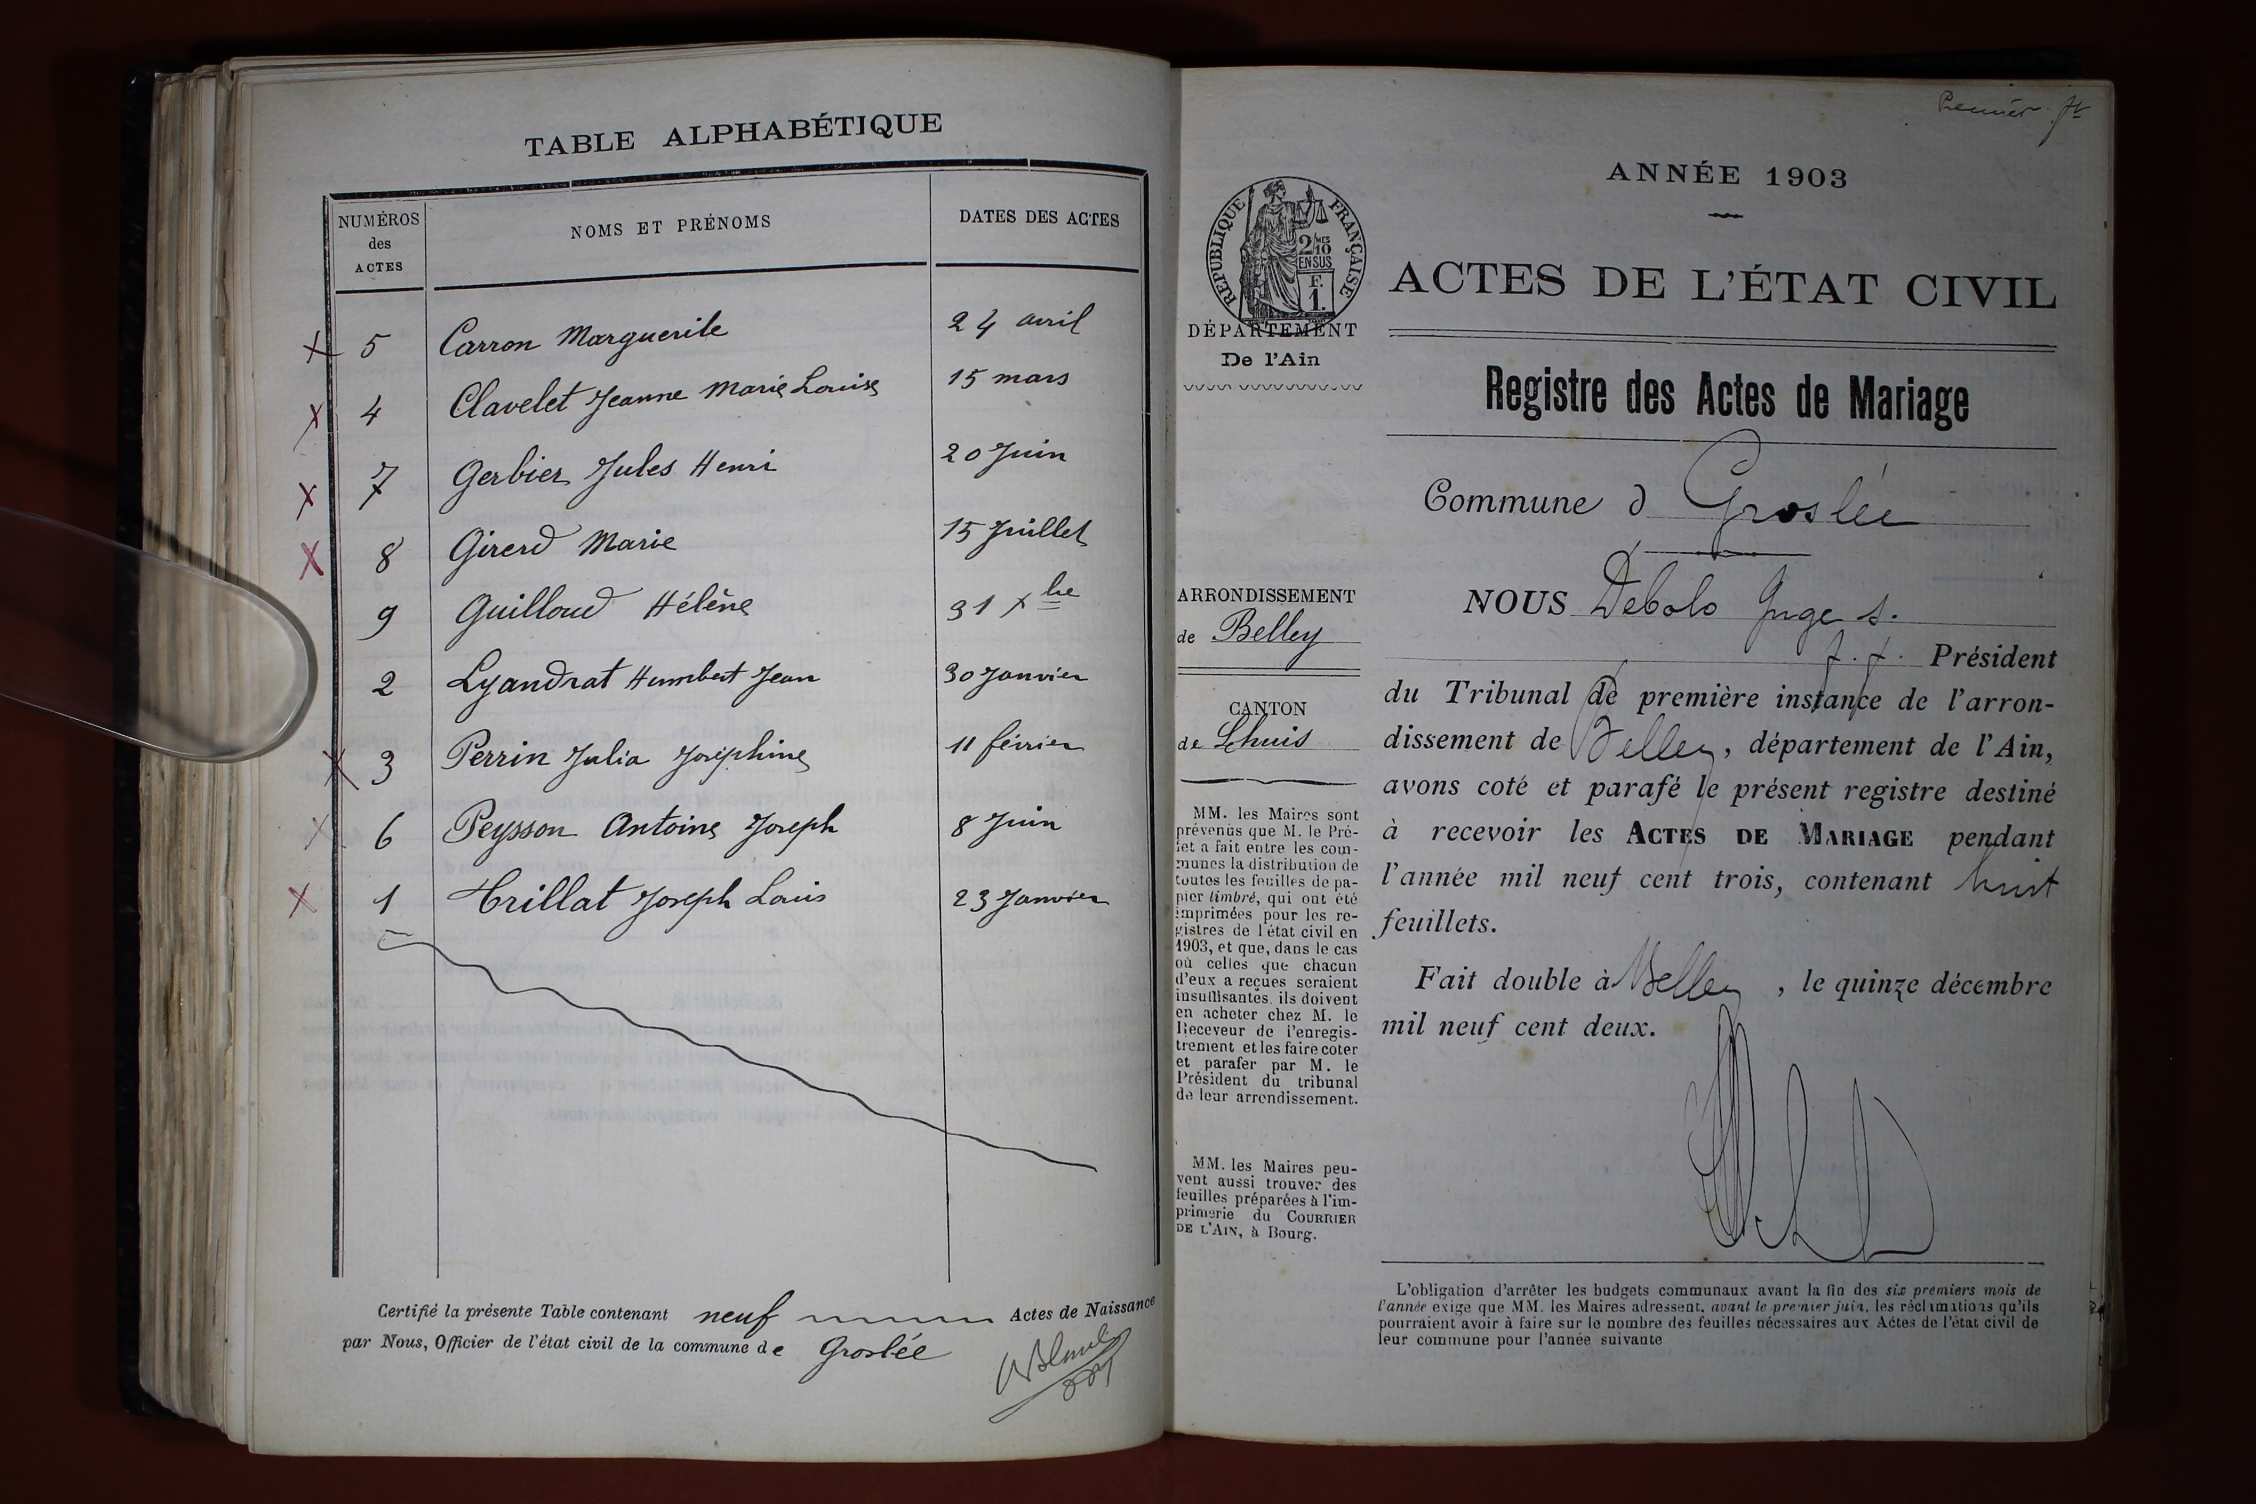 TABLE ALPHABÉTIQUE
NUMÉROS
des
ACTES
NOMS ET PRÉNOMS
DATES DES ACTES
5 Carron Marguerite 24 avril
4 Clavelet Jeanne Marie Louise 15 mars
7 Gerbier Jules Henri 20 Juin
8 Girerd Marie 15 Juillet
9 Guilloud Hélène 31 Xbre
2 Lyandrat Humbert Jean 30 Janvier
3 Perrin Julia Joséphine 11 février
6 Peysson Antoine Joseph 8 Juin
1 Trillat Joseph Louis 23 Janvier
Certifié la présente Table contenant neuf Actes de Naissance
par Nous, Officier de l'état civil de la commune de Groslée
Premier ft
ANNÉE 1903
RÉPUBLIQUE FRANÇAISE
2/10MES
EN SUS
F.
1.
ACTES DE L'ÉTAT CIVIL
DÉPARTEMENT
De l'Ain
Registre des Actes de Mariage
Commune d Groslée
ARRONDISSEMENT
de Belley
CANTON
de Lhuis
MM. les Maires sont
prévenus que M. le Pré-
fet a fait entre les com-
munes la distribution de
toutes les feuilles de pa-
pier timbré, qui ont été
imprimées pour les re-
gistres de l'état civil en
1903, et que, dans le cas
où celles que chacun
d'eux a reçues seraient
insuffisantes, ils doivent
en acheter chez M. le
Receveur de l'enregis-
trement et les faire coter
et parafer par M. le
Président du tribunal
de leur arrondissement.
MM. les Maires peu-
vent aussi trouver des
feuilles préparées à l'im-
primerie du COURRIER
DE L'AIN, à Bourg.
NOUS Debolo Juge s.
f. f. Président
du Tribunal de première instance de l'arron-
dissement de Belley, département de l'Ain,
avons coté et parafé le présent registre destiné
à recevoir les ACTES DE MARIAGE pendant
l'année mil neuf cent trois, contenant huit
feuillets.
Fait double à Belley, le quinze décembre
mil neuf cent deux.
L'obligation d'arrêter les budgets communaux avant la fin des six premiers mois de
l'année exige que MM. les Maires adressent, avant le premier juin, les réclamations qu'ils
pourraient avoir à faire sur le nombre des feuilles nécessaires aux Actes de l'état civil de
leur commune pour l'année suivante